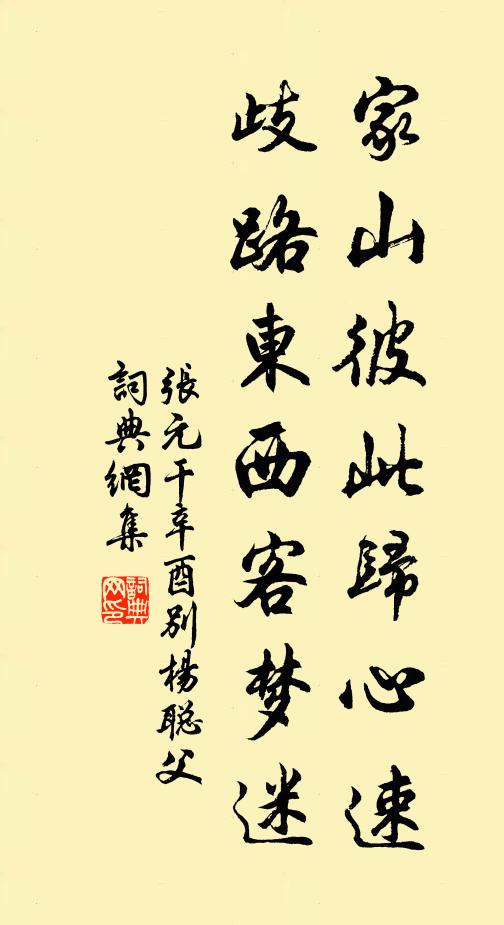 家山彼此歸心速
歧路東西客梦迷
張元干辛酉别楊聪父
詞典網集
詞典網印